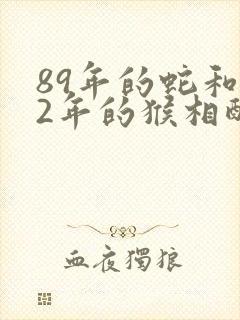 89年的蛇和
2年的猴相配
血夜獨狼